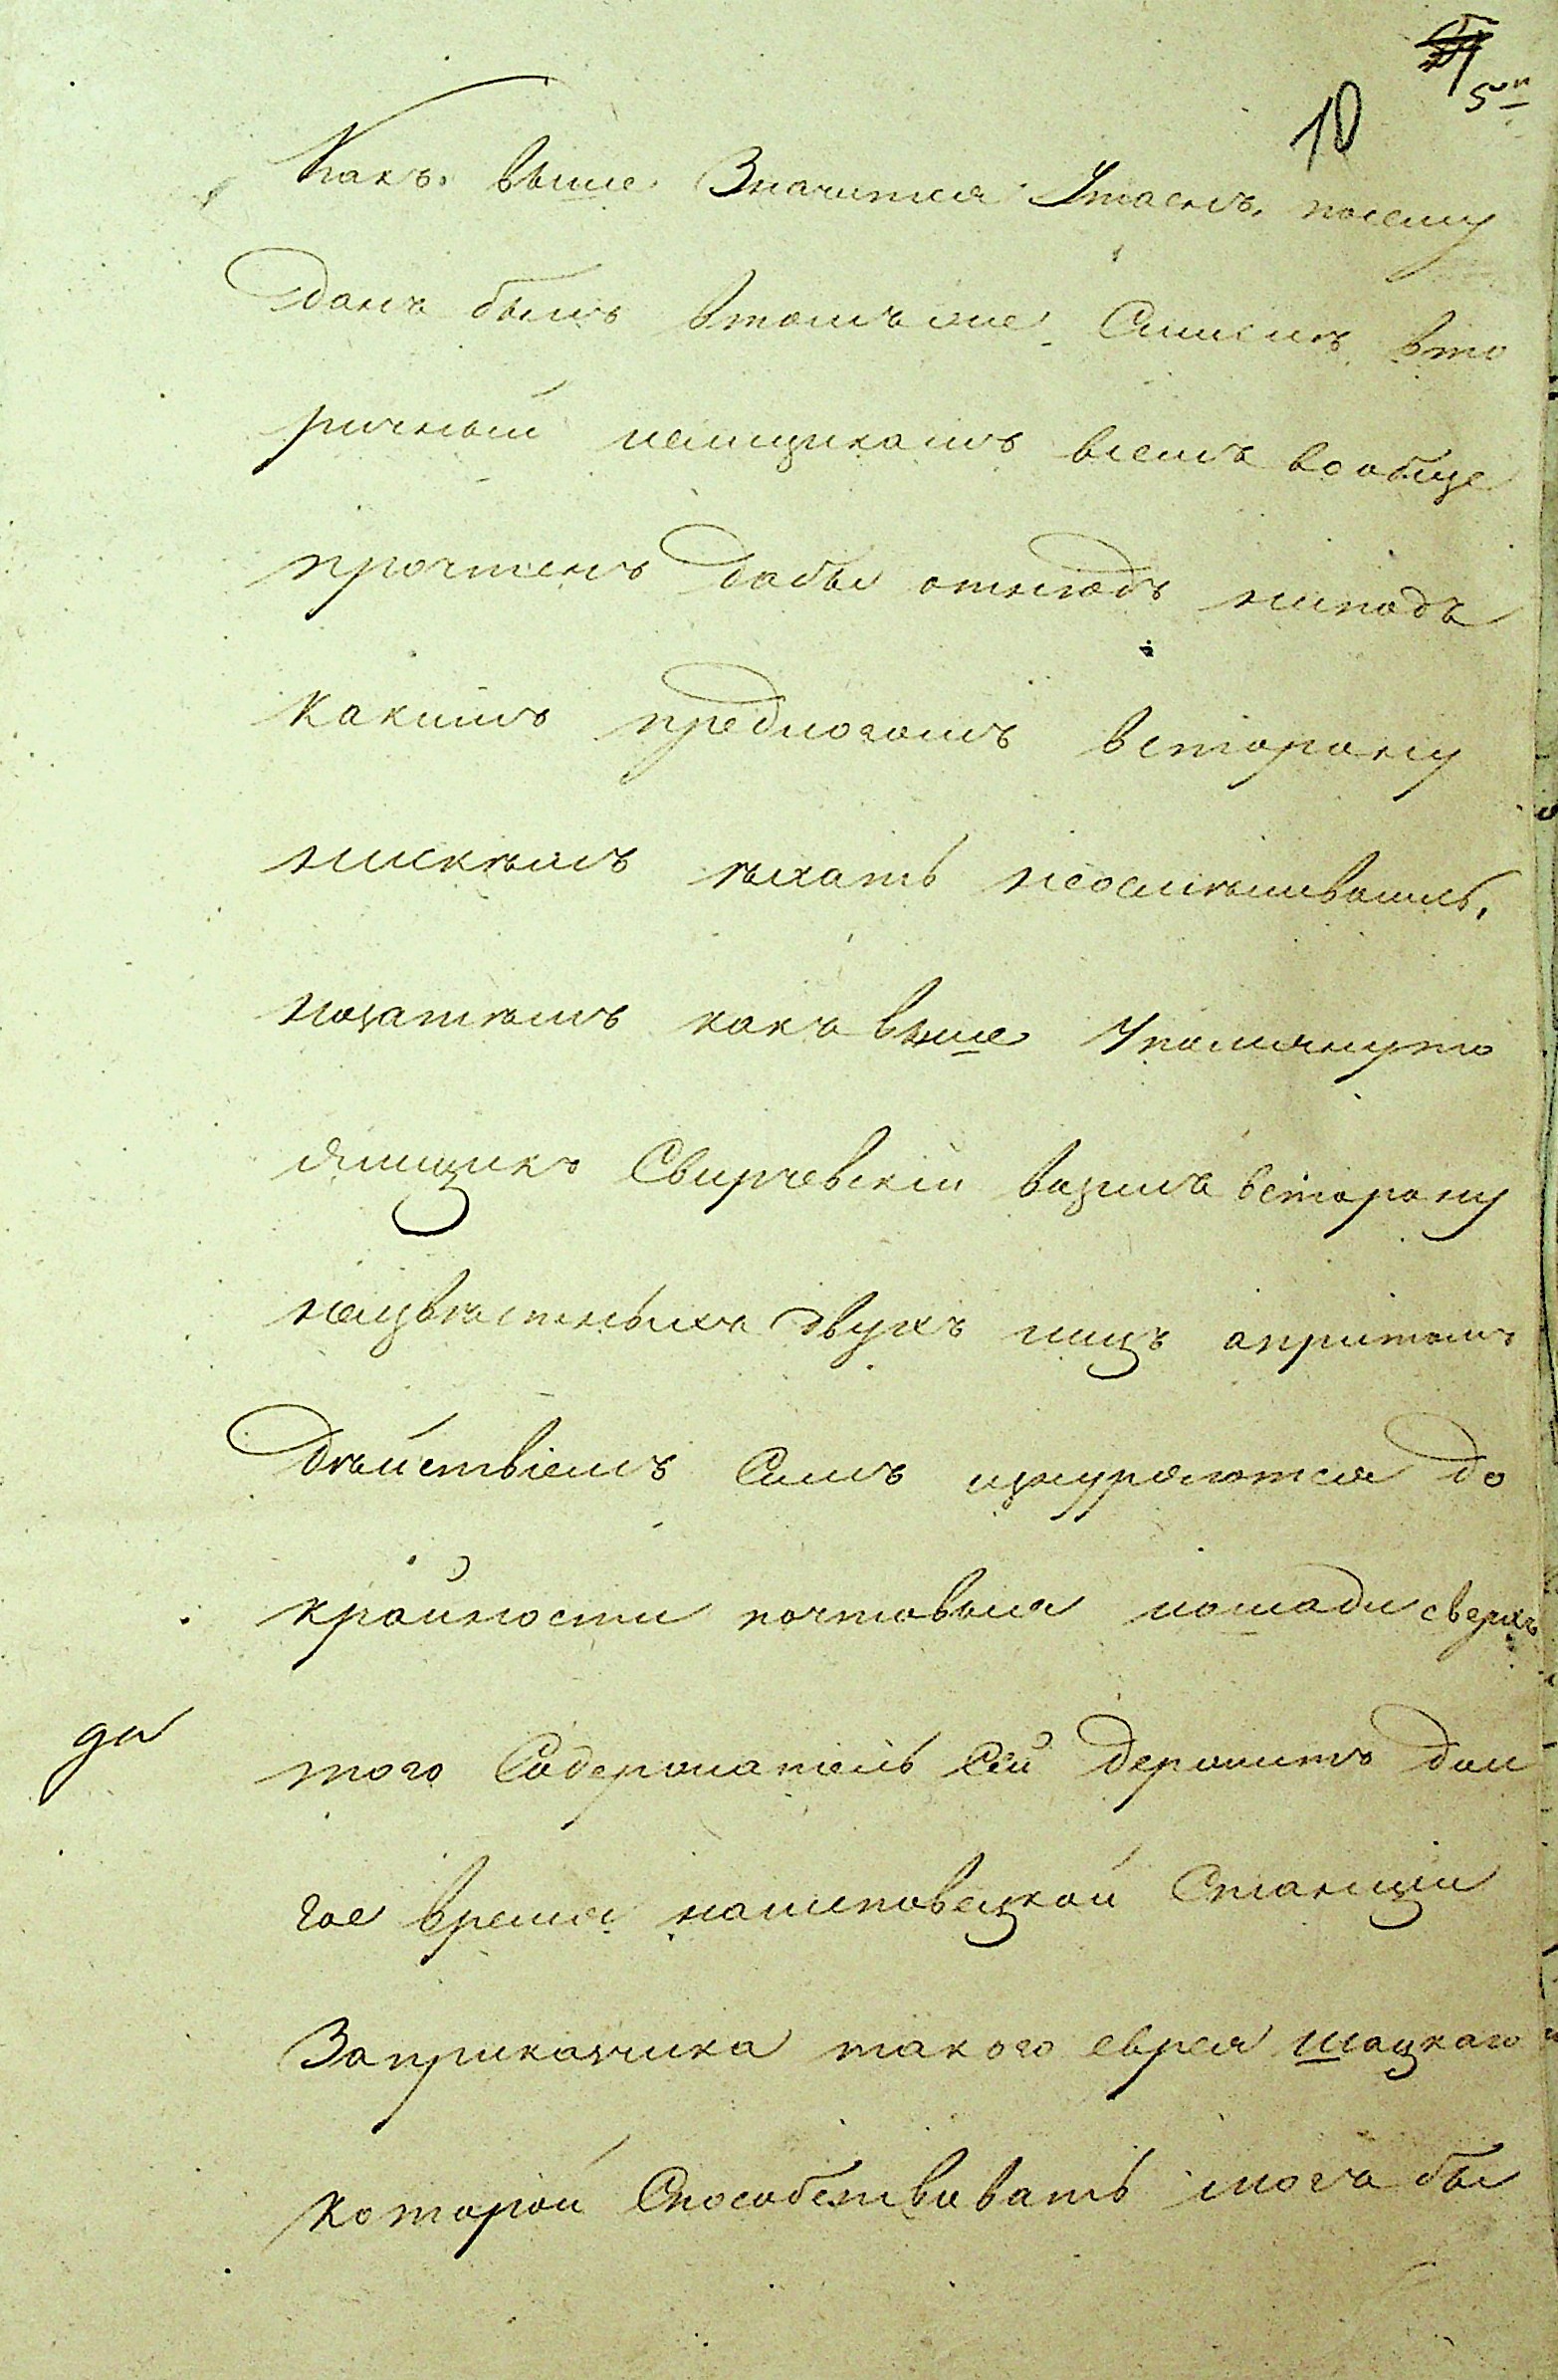 10
5
Какъ выше Значится Утаенъ, посему
данъ былъ втомъ же Смыслѣ вто
ричный ямщикамъ всемъ вообще
прочтенъ дабы отнюдь нипод
какимъ предлогомъ всторону
нискѣмъ ѣхать неосмѣливались,
нозатѣмъ какъ выше Упомянуто
ямщикъ Свирчевскій возилъ всторону
неизвѣстныхъ двухъ лицъ апритомъ
дѣйствіемъ Симъ изнуряются до
крайности почтовыя лошади сверхъ
того Содержатель Сей держитъ дол
гое время Станціи
Заприкащика такого еврея Шацкаго
которой Способствовать могъ бы